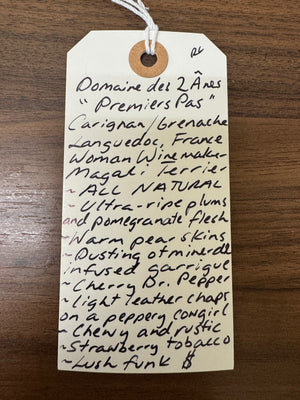 RL
Domaine des 2 Ânes
"Premiers Pas"
Carignan/Grenache
Languedoc, France
Woman Winemaker
Magali Terrier
~ALL NATURAL
~Ultra-ripe plums
and pomegranate flesh
~Warm pear skins
~Dusting of mineral
infused garrigue
~Cherry Dr. Pepper
~light leather chaps
on a peppery cowgirl
~Chewy and rustic
~Strawberry tobacco
~Lush funk $